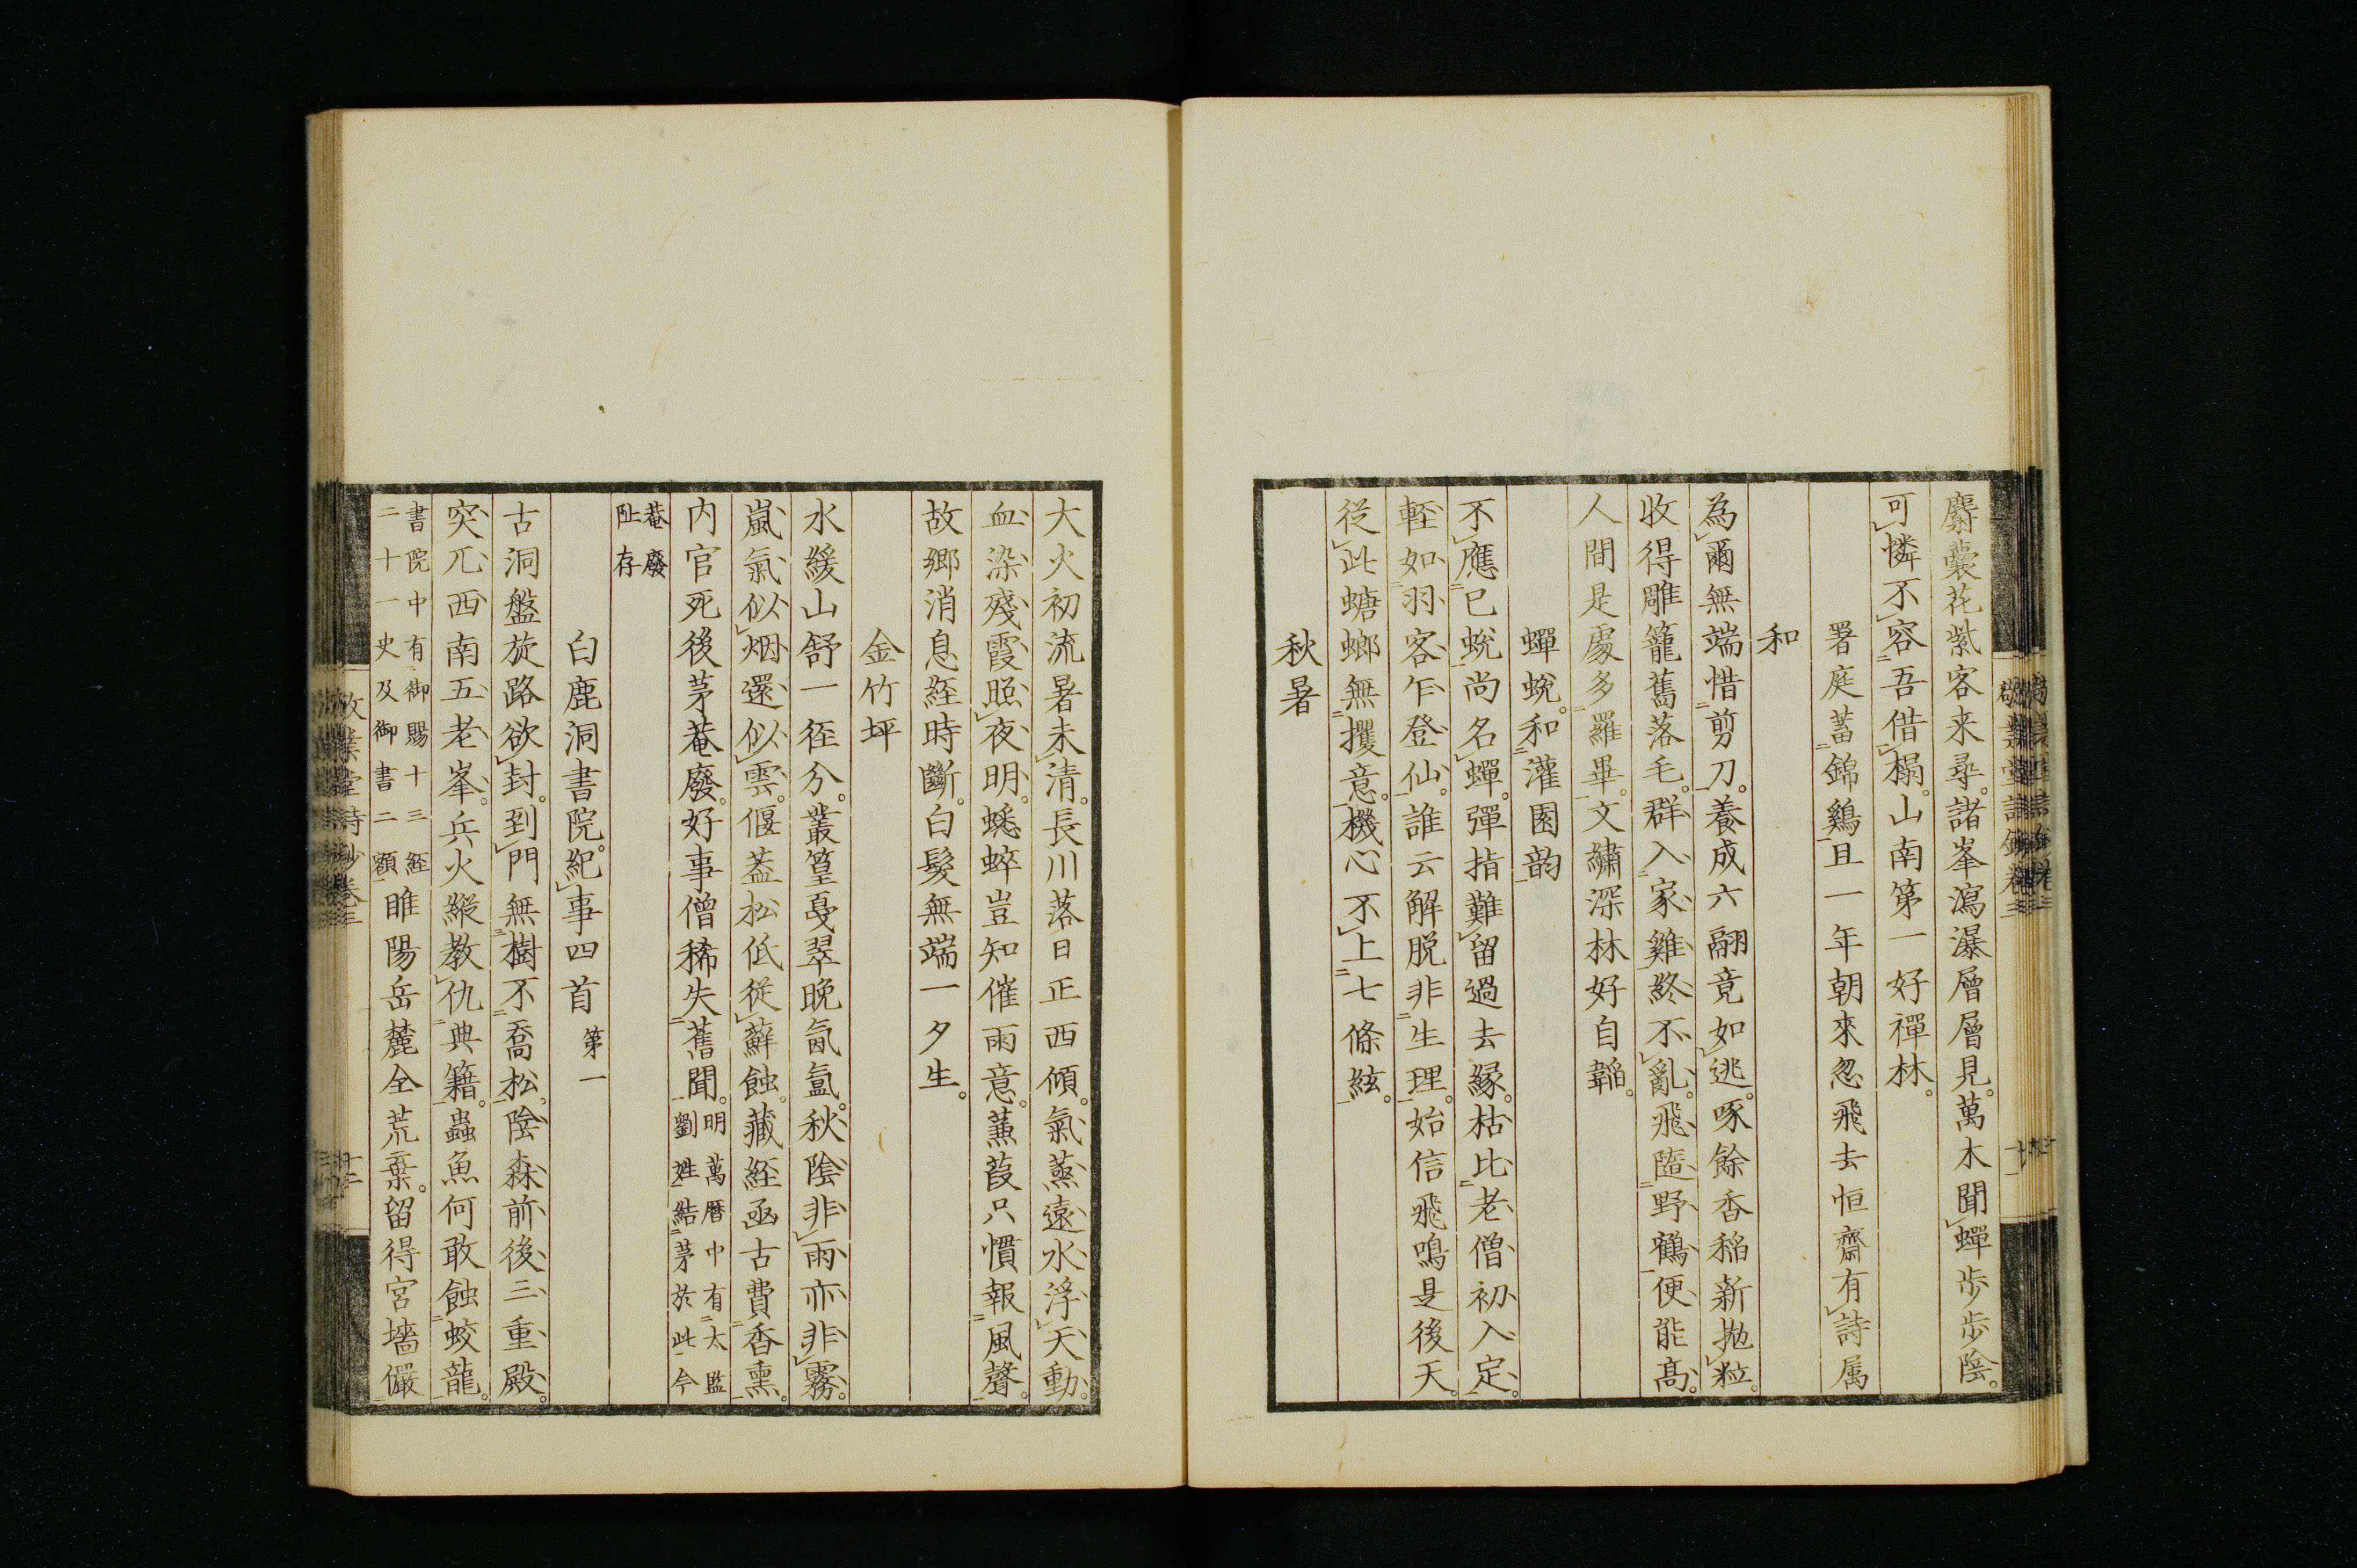 麝囊花紫客来尋諸峯瀉瀑層層見萬木聞蟬歩歩陰
可憐不容吾借榻山南第一好禪林
署庭蓄錦鷄且一年朝來忽飛去恒齋有詩属
和
為爾無端惜剪刀養成六翮竟如逃啄餘香稲新抛粒
收得雕籠舊落毛群入家雞終不亂飛隨野鶴便能高
人間是處多羅畢文繡深林好自韜
蟬蛻和灌園韵
不應已蛻尚名蟬彈指難留過去緣枯比老僧初入定
輕如羽客乍登仙誰云解脱非生理始信飛鳴是後天
従此螗螂無攫意機心不上七條絃
秋暑
大火初流暑未清長川落日正西傾氣蒸遠水浮天動
血染殘霞照夜明蟋蟀豈知催雨意蒹葭只慣報風聲
故鄉消息経時斷白髮無端一夕生
金竹坪
水緩山舒一径分叢篁戞翠晚氤氳秋陰非雨亦非霧
嵐氣似烟還似雲偃葢松低従蘚蝕藏経函古費香熏
内官死後茅菴廢好事僧稀失舊聞
明萬曆中有太監
劉姓結茅於此今
菴廢
阯存
白鹿洞書院紀事四首 第一
古洞盤旋路欲封到門無樹不喬松陰森前後三重殿
突兀西南五老峯兵火縱教仇典籍蟲魚何敢蝕蛟龍
書院中有御賜十三経
二十一史及御書二額
睢陽岳麓全荒棄留得宮墻儼
敬業堂詩鈔卷三
十二